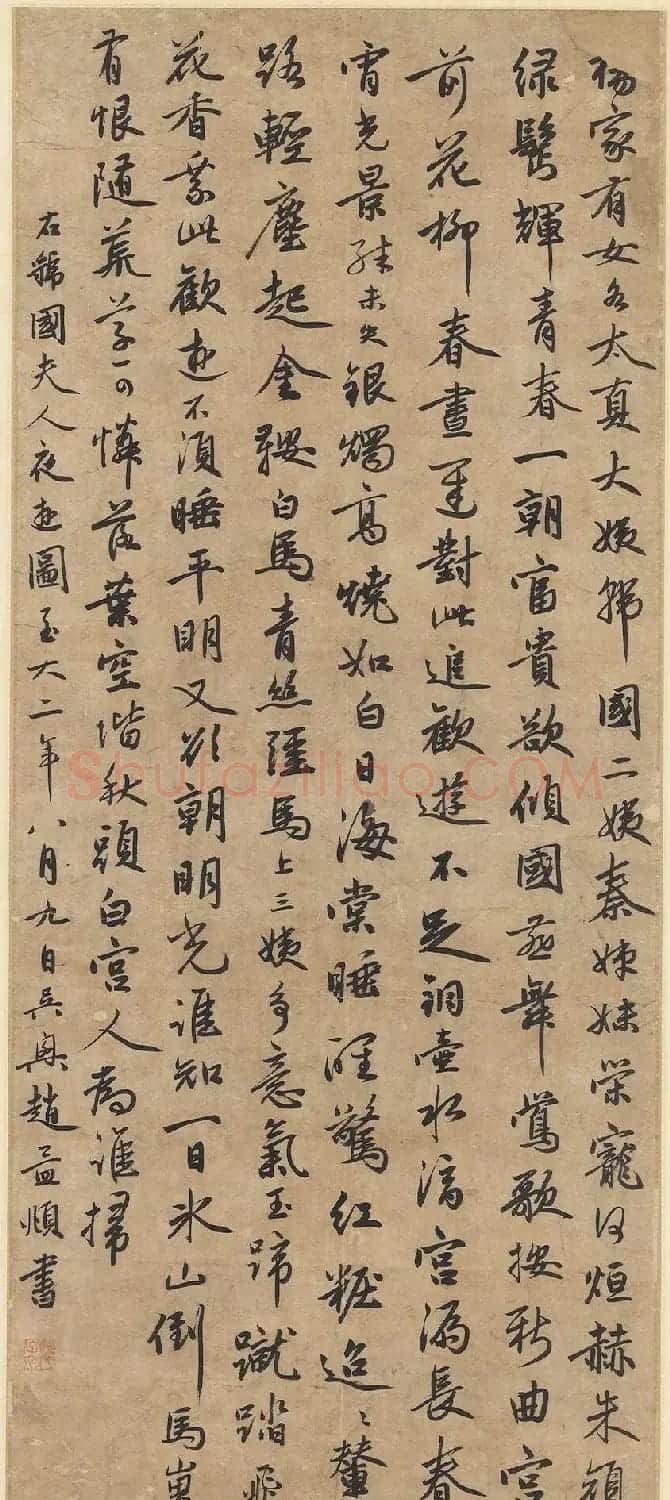 楊家有女名太真大姨虢國二姨秦姊妹榮寵何烜赫朱顏
綠鬢輝青春一朝富貴欲傾國燕舞鶯歌按新曲宮
前花柳春晝遲對此追歡遊不足銅壺水滴宮漏長春
宵光景殊未央銀燭高燒如白日海棠睡醒驚紅粧迢々輦
路輕塵起金鞍白馬青絲韁馬上三姨多意氣玉蹄蹴踏飛
花香乘此歡遊不須睡平明又欲朝明光誰知一日冰山倒馬嵬
有恨隨荒草可憐落葉空階秋頭白宮人為誰掃
右虢國夫人夜遊圖至大二年八月九日吳興趙孟頫書
Shufaziliao.COM